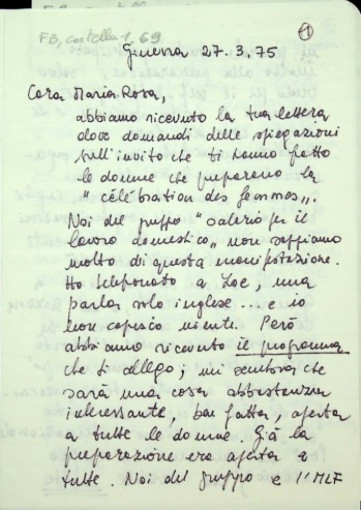 1
FB, cartella 1, 69
Ginevra 27.3.75
Cara Maria Rosa,
abbiamo ricevuto la tua lettera
dove domandi delle spiegazioni
sull'invito che ti hanno fatto
le donne che preparano la
"célébration des femmes".
Noi del gruppo "salario per il
lavoro domestico" non sappiamo
molto di questa manifestazione.
Ho telefonato a Zoe, ma
parla solo inglese... e io
non capisco niente. Però
abbiamo ricevuto il programma
che ti allego; mi sembra che
sarà una cosa abbastanza
interessante, ben fatta aperta
a tutte le donne. Già la
preparazione era aperta a
tutte. Noi del gruppo e l'MLF